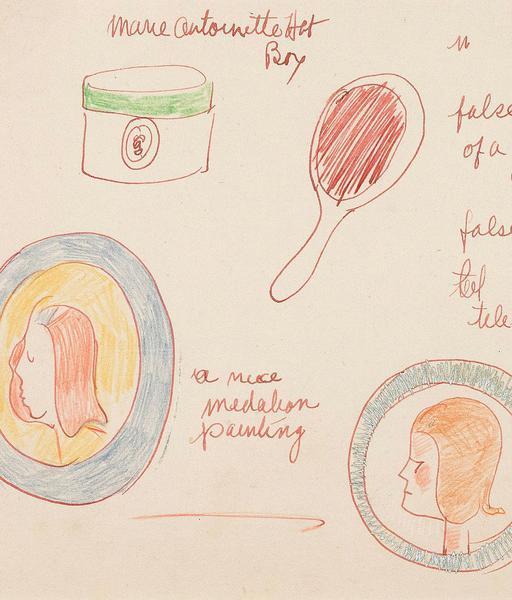 Marie Antoinette Hat
Box
false
of a
false
tele
a nice
medalion
painting